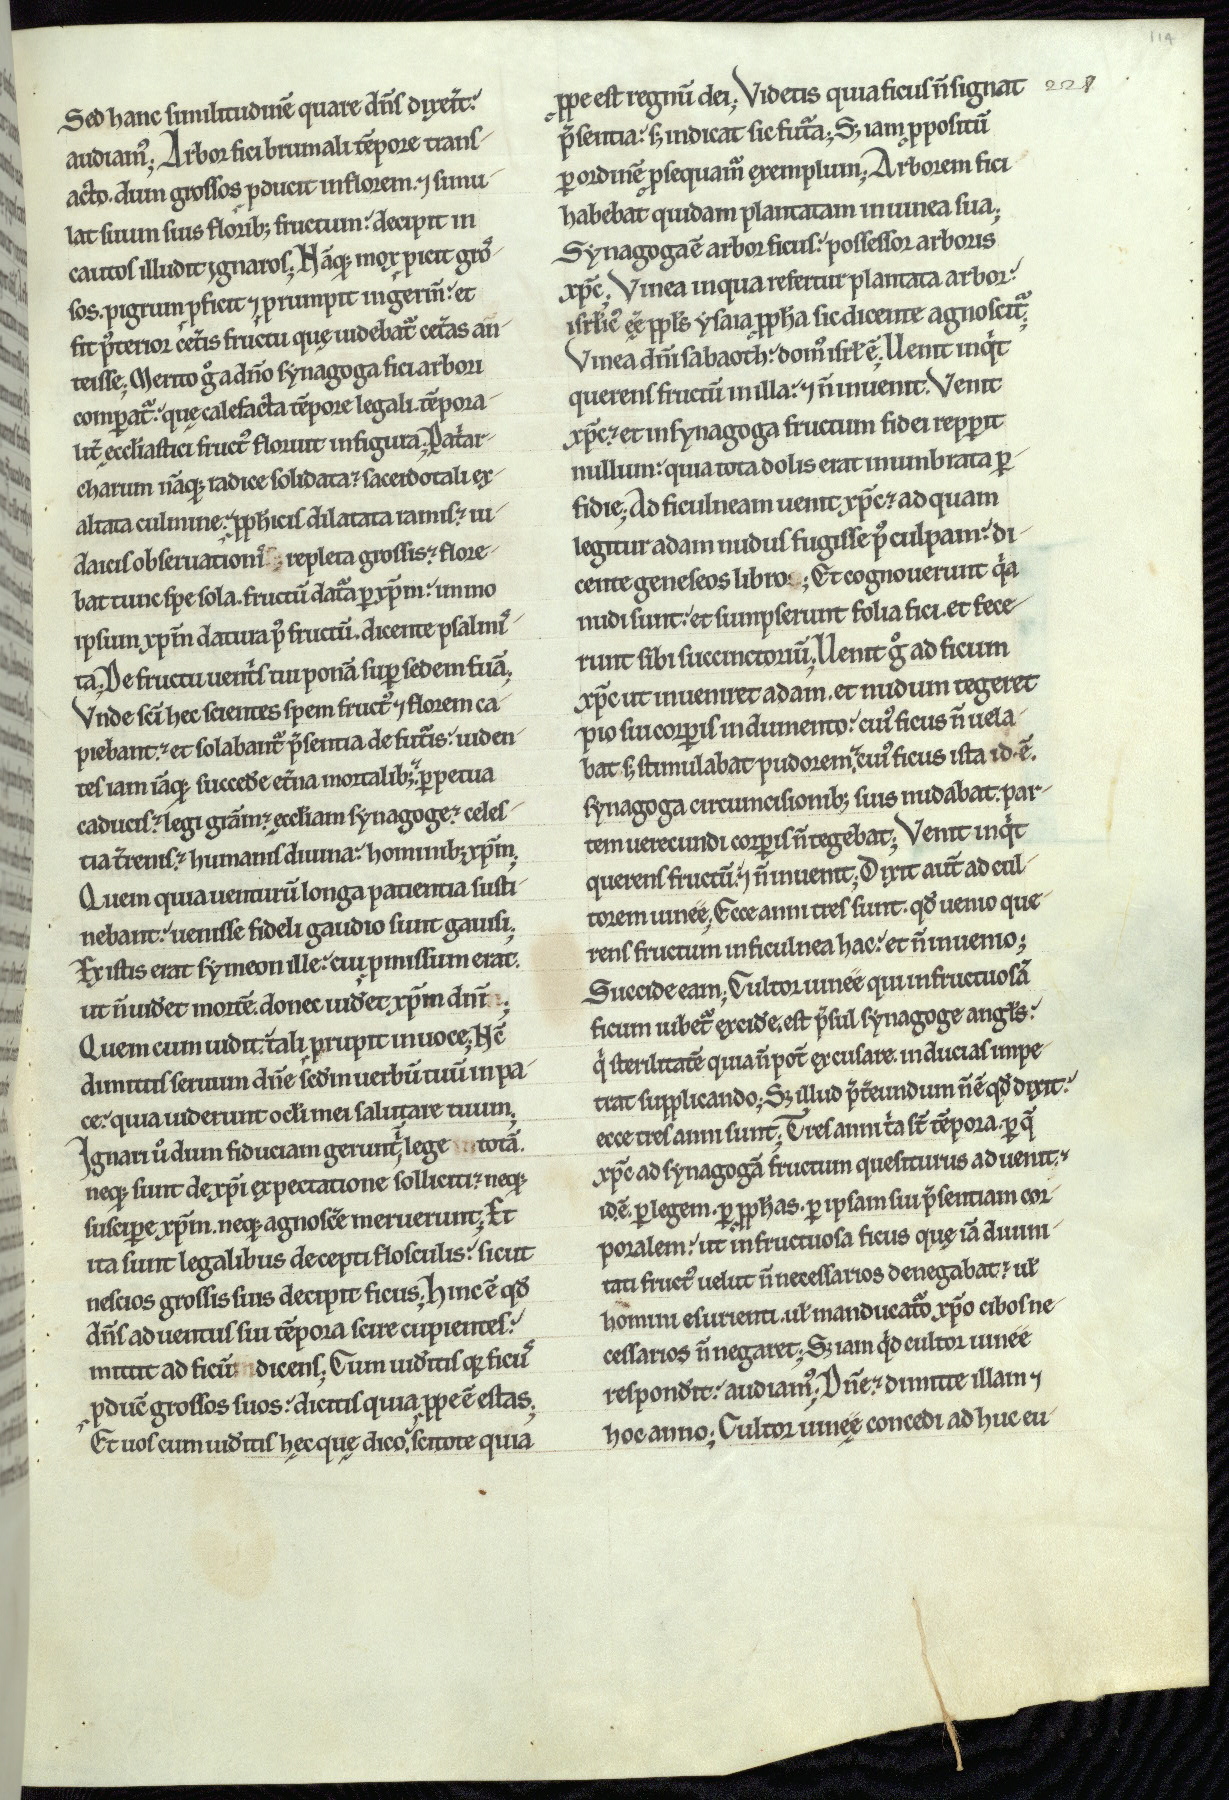 114
227
Sed hanc similitudinē quare dn̄s dixer̄it:
audiam᷒; Arbor fici brumali tēpore trans-
acto. dum grossos ꝓducit in florem. ⁊ simu-
lat suum suis florib; fructum: decipit in
cautos illudit ignaros; Nāq; mox ꝓicit gro-
sos. pigrum ꝓficit ⁊ ꝓrumpit in germ̄: et
fit p̄terior cet̄is fructu quę uidebat᷑ cet̄as an-
teisse; Merito g̊ a dn̄o synagoga fici arbori
comparat᷑: quę calefacta tēpore legali. tēpora-
lit̄ ecclīastici fruct᷒ floruit in figura; Patar-
charum nāq; radice solidata: sacerdotali ex-
altata culmine: ꝓphicis dilatata ramis: iu-
daicis obseruationi᷒ repleta grossis: flore-
bat tunc spe sola. fructū dat᷑a ꝑ xp̄m: immo
ipsum xp̄m datura ꝓ fructū. dicente psalmi-
ta; De fructu uent̄s tui ponā suꝑ sedem tuā;
Vnde scī hec scientes spem fruct᷒ ⁊ florem ca
piebant: et solabant᷑ p̄sentia de fut᷑is: uiden
tes iam iāq; succedē et̄na mortalib;: ꝑpetua
caducis: legi grām: ecclīam synagoge: celes-
tia t̄renis: humanis diuina: hominib; xp̄m;
Quem quia uenturū longa patientia susti-
nebant: uenisse fideli gaudio sunt gauisi;
Ex istis erat symeon ille: cui ꝓmissum erat.
ut n̄ uidet mortē. donec uidet xp̄m dn̄i;
Quem cum uidit: tali ꝓrupit in uoce; Nc̄
dimittis seruum dn̄e scdm uerbū tuū in pa-
ce: quia uiderunt oclī mei salutare tuum;
Ignari u᷒ dum fiduciam gerunt᷒ lege totā.
neq; sunt de xp̄i expectatione solliciti: neq;
susciꝑe xp̄m. neq; agnoscē meruerunt; Et
ita sunt legalibus decepti flosculis: sicut
nescios grossis suis decipit ficus; Hinc ē qd̄
dn̄s aduentus sui tēpora scire cupientes:
mittit ad ficū dicens; Cum uiditis q; ficu᷒
ꝓducē grossos suos: dicitis quia ꝓpe ē estas;
Et uos cum uiditis hęc quę dico, scitote quia
ꝓpe est regnū dei; Videtis quia ficus n̄ signat
p̄sentia: s; indicat sic fut᷑a; S; iam ꝓpositū
ꝑ ordinē ꝓsequam᷑ exemplum; Arborem fici
habebat quidam plantatam in uinea sua;
Synagoga ē arbor ficus: possessor arboris
xp̄c; Vinea in qua refertur plantata arbor:
isrlic᷒ ēē pplS ysaia ꝓpha sic dicente agnoscit᷑;
Vinea dn̄i sabaoth: dom᷒ isrl̄ ē; Uenit inqͥt
querens fructū in illa: ⁊ n̄ inuenit. Venit
xp̄c: et in synagoga fructum fidei repꝑit
nullum: quia tota dolis erat inumbrata ꝑ
fidie; Ad ficulneam uenit xp̄c: ad quam
legitur adam nudus fugisse p᷒ culpam: di-
cente geneseos libro; Et cognouerunt qͣa
nudi sunt: et sumpserunt folia fici. et fece-
runt sibi succinctoriū; Uenit g̊ ad ficum
xp̄c ut inueniret adam. et nudum tegeret
pio sui corꝑis indumento: cui᷒ ficus n̄ uela-
bat s; stimulabat pudorem: cui᷒ ficus ista id ē.
synagoga circumcisionib; suis nudabat. par-
tem uerecundi corꝑis n̄ tegebat; Venit inqͥt
querens fructū: ⁊ n̄ inuenit; Dixit aut̄ ad cul-
torem uineę; Ecce anni tres sunt. qd̄ uenio que-
rens fructum in ficulnea hac: et n̄ inuenio;
Succide eam; Cultor uineę qui infructuosā
ficum iubet᷑ excidē. est p̄sul synagoge anglS:
qͥ sterilitatē quia n̄ pot̄ excusare. inducias impe-
trat supplicando; S; illud p̄t̄eundum n̄ ē qd̄ dixit:
ecce tres anni sunt; Tres anni tͥa st̄ tēpora. ꝑ q̄
xp̄c ad synagogā fructum quesiturus aduenit:
id ē. ꝑ legem. ꝑ ꝓphas. ꝑ ipsam sui p̄sentiam cor-
poralem: ut infructuosa ficus quę iā diuini-
tati fruct᷒ uelut n̄ necessarios denegabat: ul̄
homini esurienti. ul̄ manducat᷑o xp̄o cibos ne-
cessarios n̄ negaret; S; iam qͥd cultor uineę
respondit: audiam᷒; Dn̄e: dimitte illam ⁊
hoc anno; Cultor uineę concedi adhuc eu-